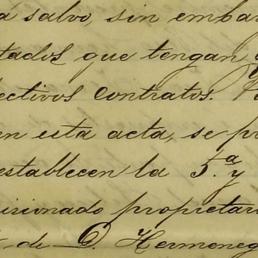 a salvo, sin embar
tados que tengan
ectivos contratos.
en esta acta, se pr
establecen la 5.ª y
isionado propietari
de G. Hermeneg